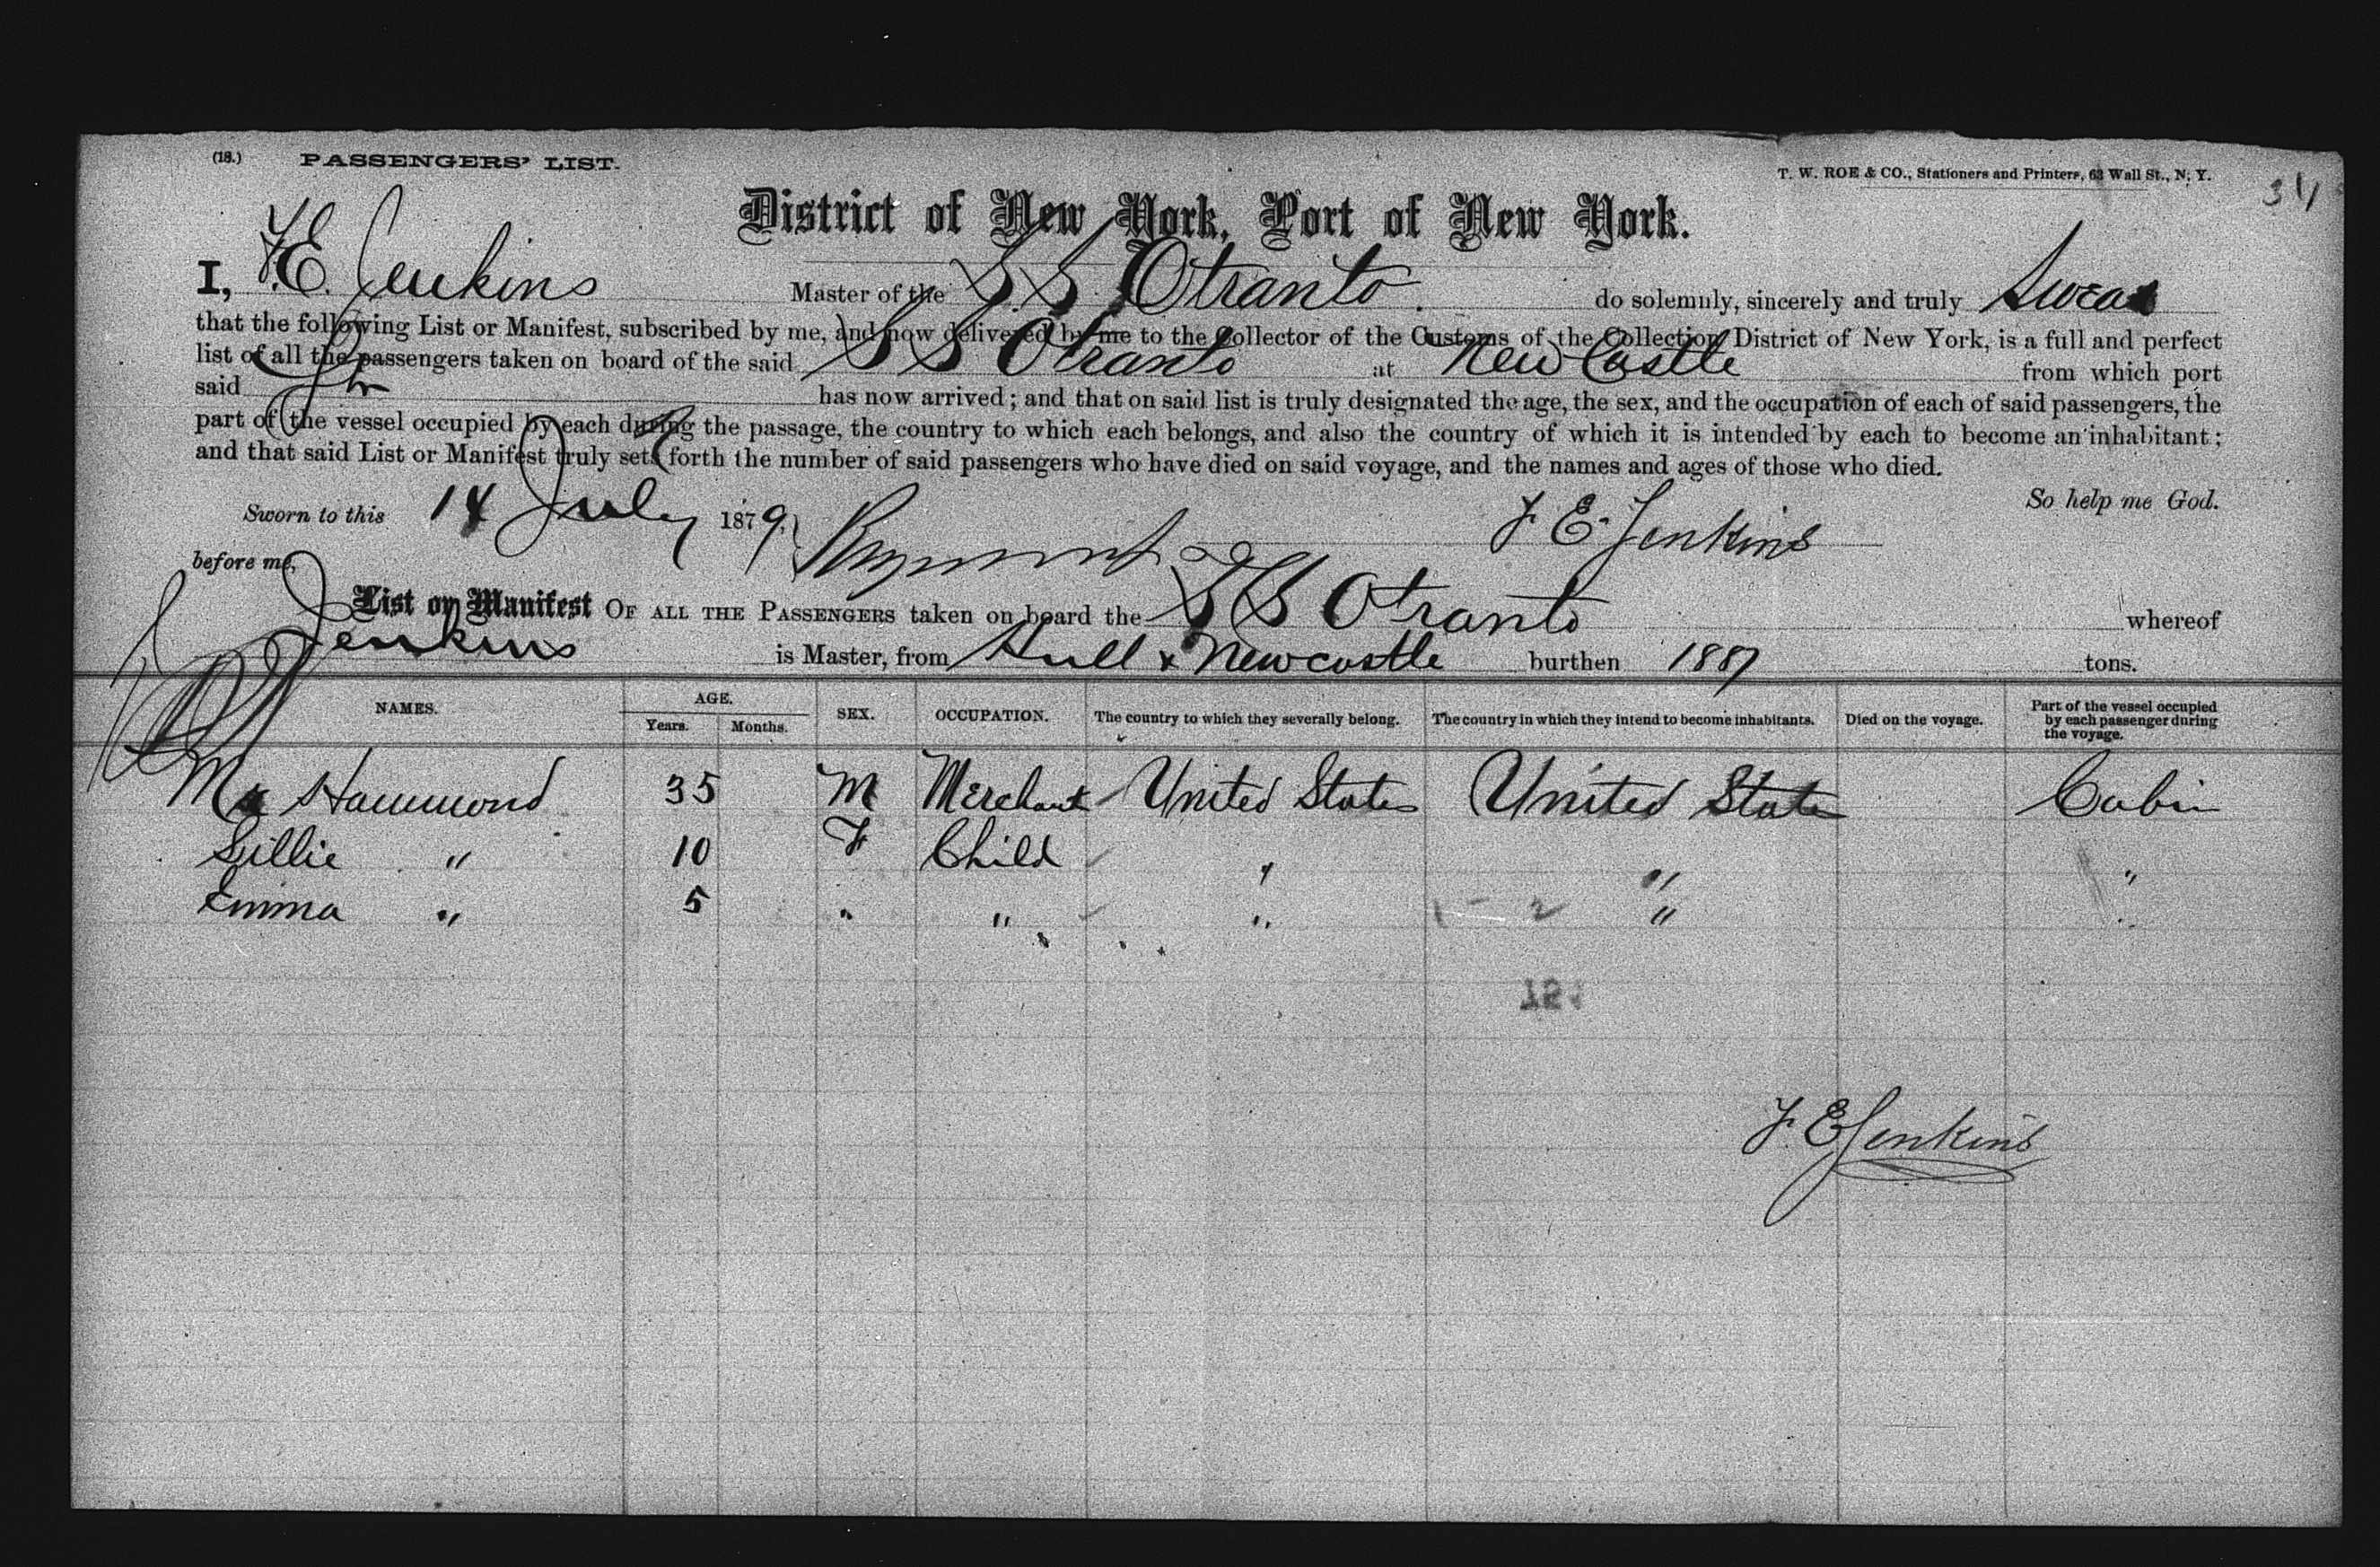 (18.) PASSENGERS' LIST.
T. W. ROE & CO., Stationers and Printers, 63 Wall St., N. Y.
District of New York, Port of New York.
I, F.E. Jenkins Master of the SS Otranto do solemnly, sincerely and truly Swear
that the following List or Manifest, subscribed by me, and now delivered by me to the Collector of the Customs of the Collection District of New York, is a full and perfect
list of all the passengers taken on board of the said SS Otranto at New Castle from which port
said has now arrived; and that on said list is truly designated the age, the sex, and the occupation of each of said passengers, the
part of the vessel occupied by each during the passage, the country to which each belongs, and also the country of which it is intended by each to become an inhabitant;
and that said List or Manifest truly sets forth the number of said passengers who have died on said voyage, and the names and ages of those who died.
So help me God.
Sworn to this 14 July 1879, F. E. Jenkins
before me,
List or Manifest OF ALL THE PASSENGERS taken on board the SS Otranto whereof
Jenkins is Master, from Hull & Newcastle burthen 1887 tons.
NAMES. AGE. Years. Months. SEX. OCCUPATION. The country to which they severally belong. The country in which they intend to become inhabitants. Died on the voyage. Part of the vessel occupied by each passenger during the voyage.
Hammond 35 M Merchant United States United States Cabin
Lillie " 10 F Child " " "
Emma " 5 " " " " "
F. E Jenkins